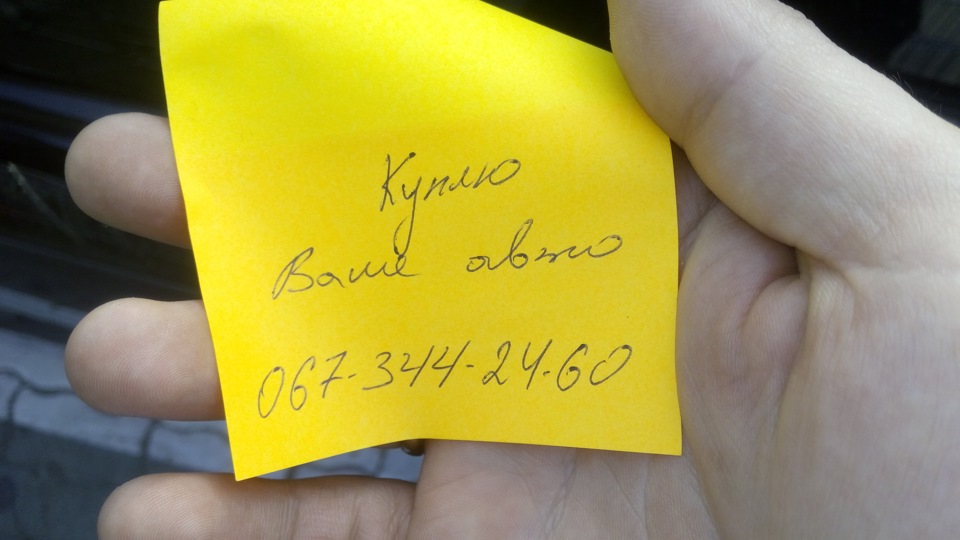 Куплю
Ваше авто
067-344-24-60